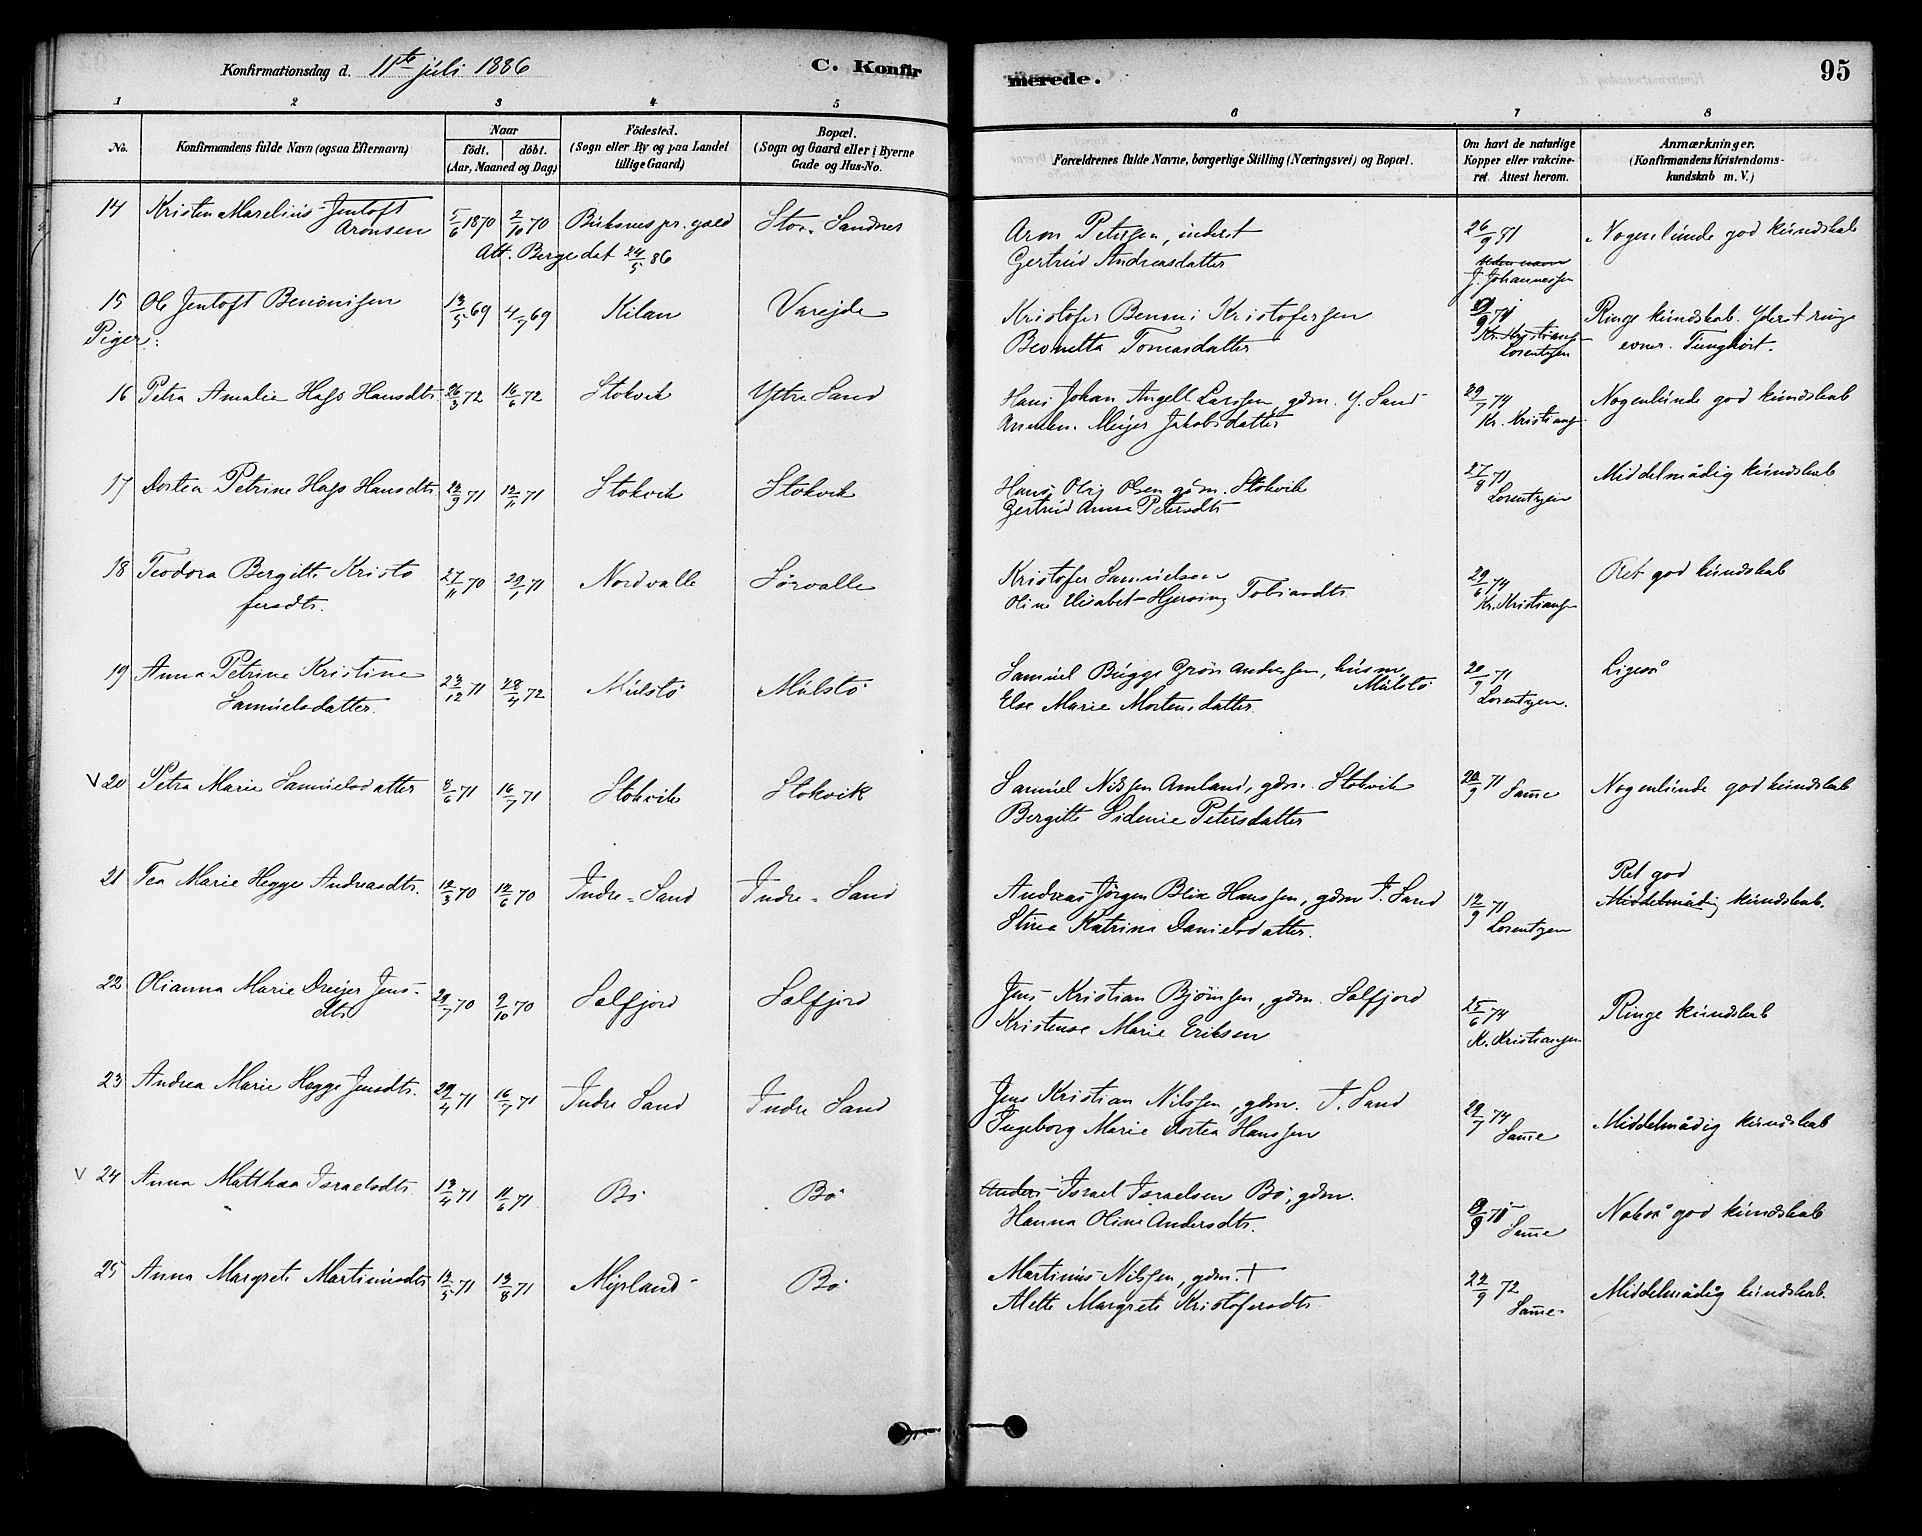 Konfirmationsdag d. 11te juli 1886
C. Konfirmerede.
95
1 2 3 4 5 6 7 8
No.
Konfirmandens fulde Navn (ogsaa Efternavn)
Naar
födt. döbt.
(Aar, Maaned og Dag)
Födested.
(Sogn eller By og paa Landet
tillige Gaard)
Bopæl.
(Sogn og Gaard eller i Byerne
Gade og Hus-No.
Forældrenes fulde Navne, borgerlige Stilling (Næringsvei) og Bopæl.
Om havt de naturlige
Kopper eller vakcine-
ret. Attest herom.
Anmærkninger.
(Konfirmandens Kristendoms-
kundskab m. V.)
14 Kristen Marelius Jentoft
Aronsen 5/6 1870 2/10 70 Buksnes pr. gjeld Stor-Sandnes
Att. Berge dat 24/5 86
Aron Petersen, inderst
Gertrud Andreasdatter
26/9 81
J. Johannessen
Nogenlunde god kundskab
15 Ole Jentoft Benonisen 13/5 69 4/7 69 Kilan Varejde
Kristofer Benoni Kristofersen
Tomasdatter
Kr. Kristians
Lorentzen
Ringe kundskab. Yderst ringe
evner. Tunghört.
Piger:
16 Petra Amalie Hass Hansdtr. 26/3 72 16/6 72 Stokvik Ytre Sand
Hans Johan Angell Larssen gdm. Y. Sand
Meijer Jakobsdatter
29/7 74
Kr. Kristians
Nogenlunde god kundskab
17 Dortea Petrine Hass Hansdtr. 22/9 71 12/11 71 Stokvik Stokvik
Hans Olsen gdm. Stokvik
Gertrud Anna Petersdtr
27/8 71
Lorentzen
Middelmådig kundskab
18 Teodora Bergitte Kristo
fersdtr. 27/11 70 29/1 71 Nordvalle Sörvalle
Kristofer Samuelsen
Oline Elisabet Hjerving Tobiasdtr.
29/6 74
Kr. Kristians
Ret god kundskab
19 Anna Petrine Kristine
Samuelsdatter. 23/12 71 28/4 72 Mulstö Mulstö
Samuel Bugge Grön Andersen, husm.
Mulstö
Else Marie Mortensdatter.
20/9 71
Lorentzen.
Ligeså
V 20 Petra Marie Samuelsdatter 8/6 71 16/7 71 Stokvik Stokvik
Samuel Nilssen Amland, gdm. Stokvik
Bergitte Sidenie Petersdatter
20/9 71 Samme
Nogenlunde god kundskab
21 Tea Marie Hegge Andreasdtr. 12/3 70 12/6 70 Indre-Sand Indre-Sand
Andreas Jörgen Blix Hanssen, gdm I. Sand
Stina Katrina Danielsdatter.
12/9 71
Lorentzen
Ret god
Middelmådig kundskab.
22 Olianna Marie Dreyer Jens-
dtr. 29/7 70 9/10 70 Solfjord Solfjord
Jens Kristian Björnsen, gdm. Solfjord
Kristense Marie Eriksen
25/6 74
K. Kristiansen
Ringe kundskab
23 Andrea Marie Hegge Jensdtr. 29/4 71 16/7 71 Indre Sand Indre Sand
Jens Kristian Nilssen, gdm. I. Sand
Ingeborg Marie Dortea Hanssen
29/7 74
Samme
Middelmådig kundskab
V 24 Anna Matthea Israelsdtr. 13/4 71 11/6 71 Bö Bö
Anders Israel Israelsen Bö, gdm.
Hanna Oline Andersdtr.
Samme
god kundskab
25 Anna Margrete Martinusdtr 12/5 71 13/8 71 Myrland Bö
Martinus Nilssen, gdm. +
Mette Margrete Kristofersdtr.
22/9 72
Samme
Middelmådig kundskab.